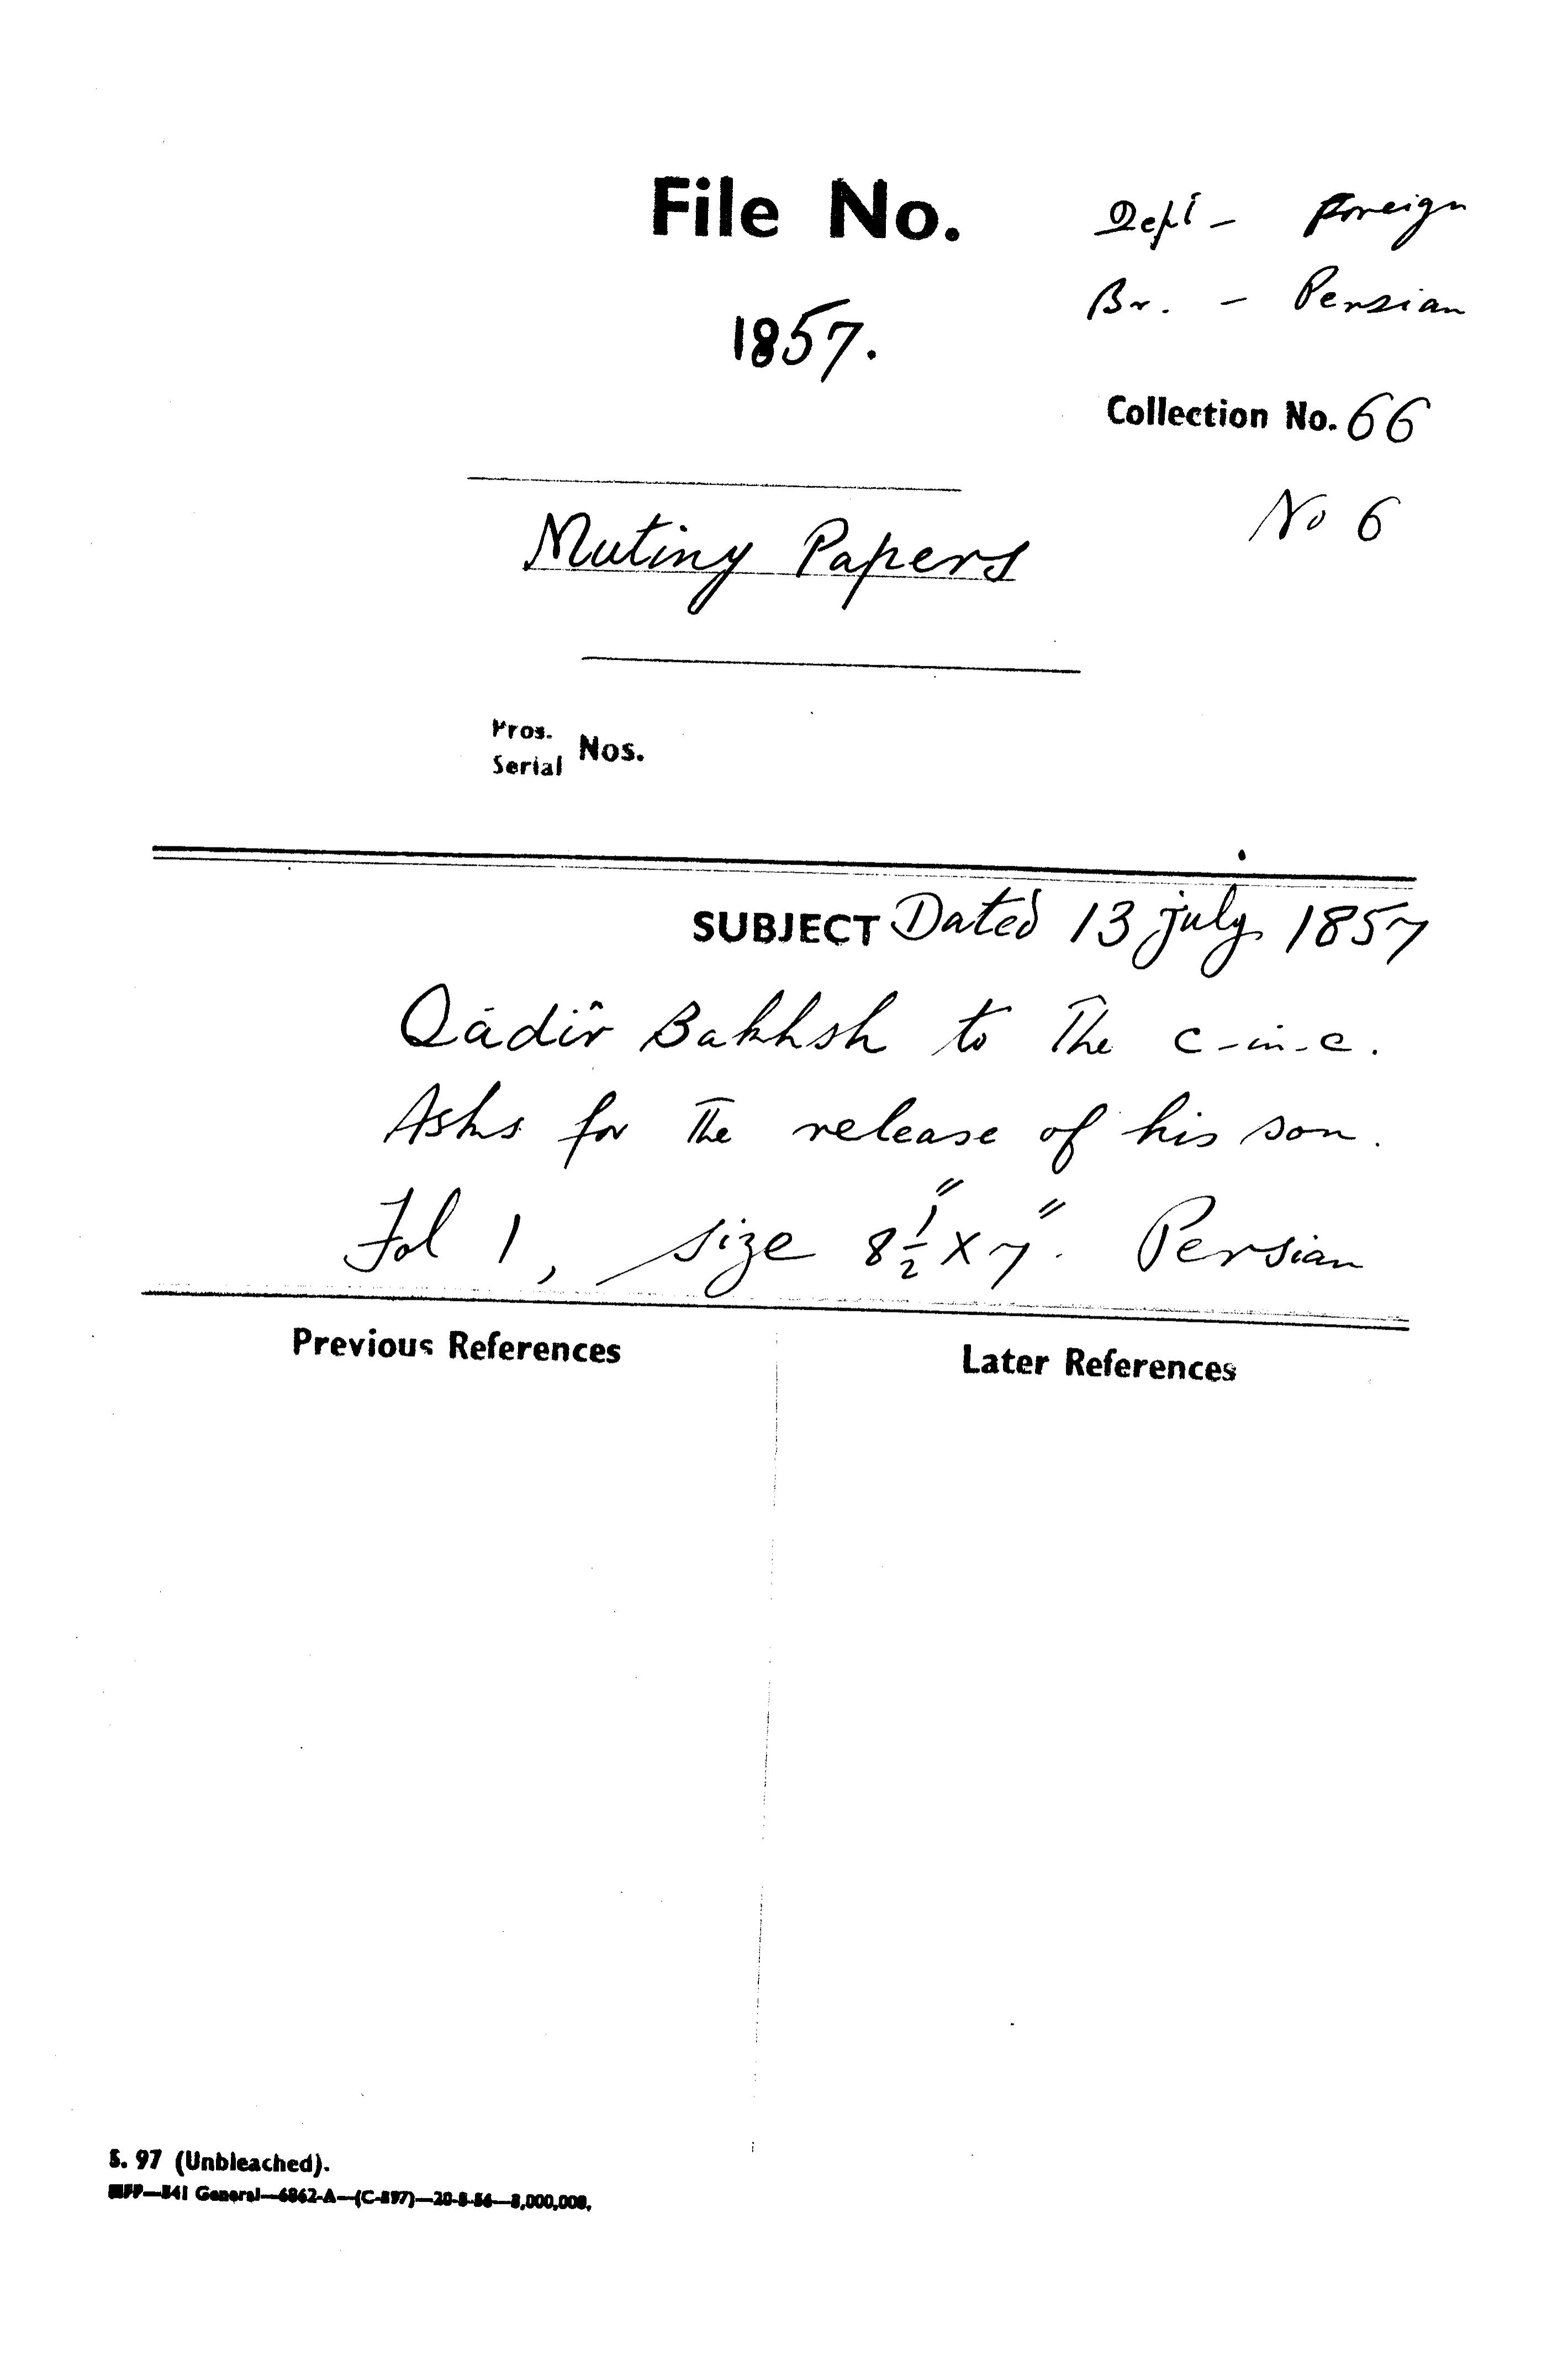 File No.
Dept - Foreign
Br. - Persian
1857.
Collection No. 66
No 6
Mutiny Papers
Pros.
Serial Nos.
SUBJECT Dated 13 july 1857
Qādir Bakhsh to The c-in-c.
Asks for The release of his son.
Fol 1, size 8½" x 7". Persian
Previous References
Later References
S. 97 (Unbleached).
General—6862-A—